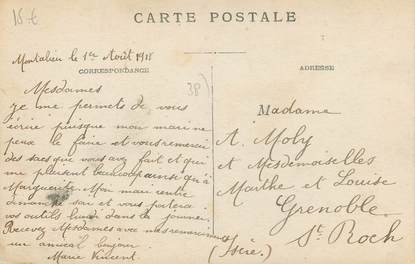 15 €
CARTE POSTALE
Montalieu le 1er Août 1918
CORRESPONDANCE
ADRESSE
38
Mesdames
je me permets de vous
écrire puisque mon mari ne
peux le faire et vous remercie
des sacs que vous avez fait et qui
me plaisent beaucoup ainsi qu'à
Marguerite. Mon mari rentre
dimanche soir et vous portera
vos outils lundi dans la journée.
Recevez Mesdames avec mes remerciements
un amical bonjour
Marie Vincent.
Madame
A. Moly
et Mesdemoiselles
Marthe et Louise
Grenoble.
St Roch
(Isère.)